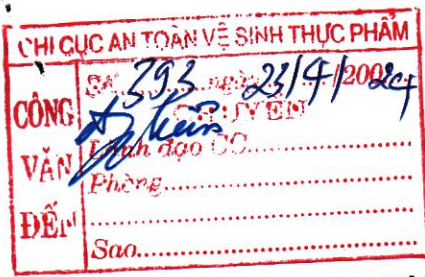 CHI CỤC AN TOÀN VỆ SINH THỰC PHẨM
CÔNG VĂN ĐẾN
Số 393 ngày 23/4/200
CHUYỂN
Lãnh đạo CC
Phòng
Sao